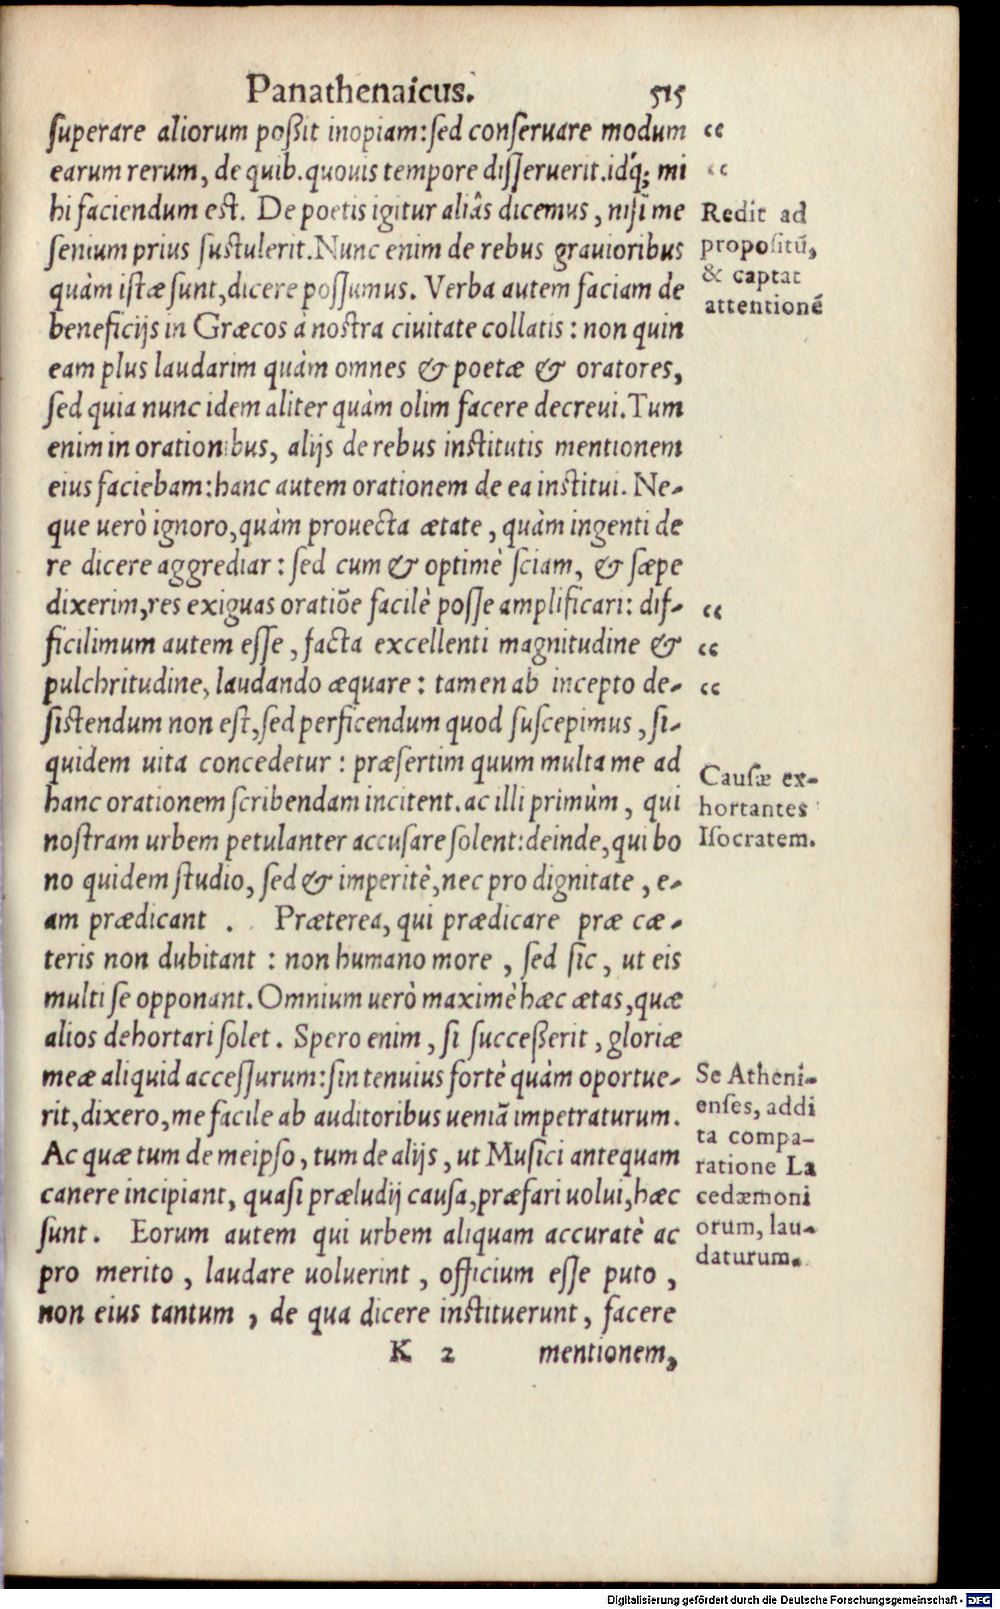 Panathenaicus. 515
superare aliorum poßit inopiam: sed conseruare modum
earum rerum, de quib. quouis tempore disseruerit. idq́; mi
hi faciendum est. De poetis igitur aliâs dicemus, nisi me
senium prius sustulerit. Nunc enim de rebus grauioribus
quàm istæ sunt, dicere possumus. Verba autem faciam de
beneficijs in Græcos a nostra ciuitate collatis: non quin
eam plus laudarim quàm omnes & poetæ & oratores,
sed quia nunc idem aliter quàm olim facere decreui. Tum
enim in orationibus, alijs de rebus institutis mentionem
eius faciebam: hanc autem orationem de ea institui. Ne-
que uerò ignoro, quàm prouecta ætate, quàm ingenti de
re dicere aggrediar: sed cum & optimè sciam, & sæpe
dixerim, res exiguas oratiõe facilè posse amplificari: dif-
ficilimum autem esse, facta excellenti magnitudine &
pulchritudine, laudando æquare: tamen ab incepto de-
sistendum non est, sed perficendum quod suscepimus, si-
quidem uita concedetur: præsertim quum multa me ad
hanc orationem scribendam incitent. ac illi primùm, qui
nostram urbem petulanter accusare solent: deinde, qui bo
no quidem studio, sed & imperitè, nec pro dignitate, e-
am prædicant. Præterea, qui prædicare præ cæ-
teris non dubitant: non humano more, sed sic, ut eis
multi se opponant. Omnium uerò maximè hæc ætas, quæ
alios dehortari solet. Spero enim, si succeßerit, gloriæ
meæ aliquid accessurum: sin tenuius fortè quàm oportue-
rit, dixero, me facile ab auditoribus ueniã impetraturum.
Ac quæ tum de meipso, tum de alijs, ut Musici antequam
canere incipiant, quasi præludij causa, præfari uolui, hæc
sunt. Eorum autem qui urbem aliquam accuratè ac
pro merito, laudare uoluerint, officium esse puto,
non eius tantum, de qua dicere instituerunt, facere
K 2 mentionem,
“
“
Redit ad
propositũ,
& captat
attentionẽ
“
“
“
Causæ ex-
hortantes
Isocratem.
Se Atheni-
enses, addi
ta compa-
ratione La
cedæmoni
orum, lau-
daturum.
Digitalisierung gefördert durch die Deutsche Forschungsgemeinschaft - DFG